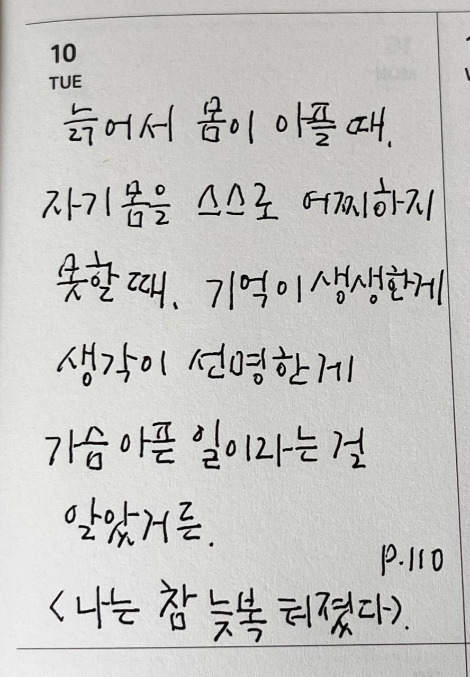 10
TUE
늙어서 몸이 아플 때,
자기 몸을 스스로 어찌하지
못할 때, 기억이 생생한게
생각이 선명한 게
가슴 아픈 일이라는 걸
알았거든.
P.110
<나는 참 늦복 터졌다>.